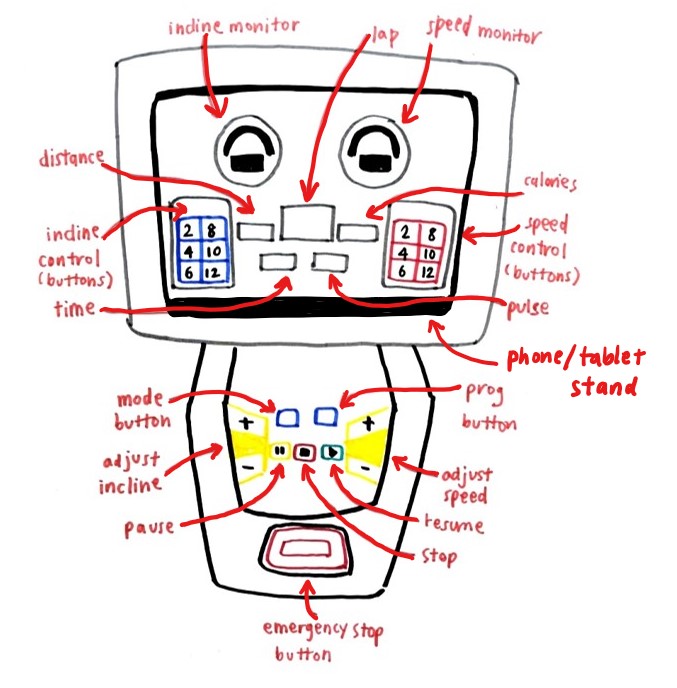 incline monitor
lap
speed monitor
distance
calories
incline
control
(buttons)
2 8
4 10
6 12
2 8
4 10
6 12
speed
control
(buttons)
time
pulse
phone/tablet
stand
mode
button
prog
button
+
+
-
-
adjust
incline
adjust
speed
pause
resume
stop
emergency stop
button